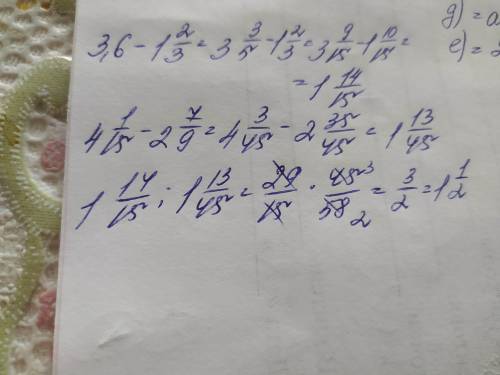 д) = 
е) = 
3,6 - 1 2/3 = 3 3/5 - 1 2/3 = 3 9/15 - 1 10/15 =
= 1 14/15
4 1/15 - 2 7/9 = 4 3/45 - 2 35/45 = 1 13/45
1 14/15 : 1 13/45 = 29/15 · 45 3/58 2 = 3/2 = 1 1/2